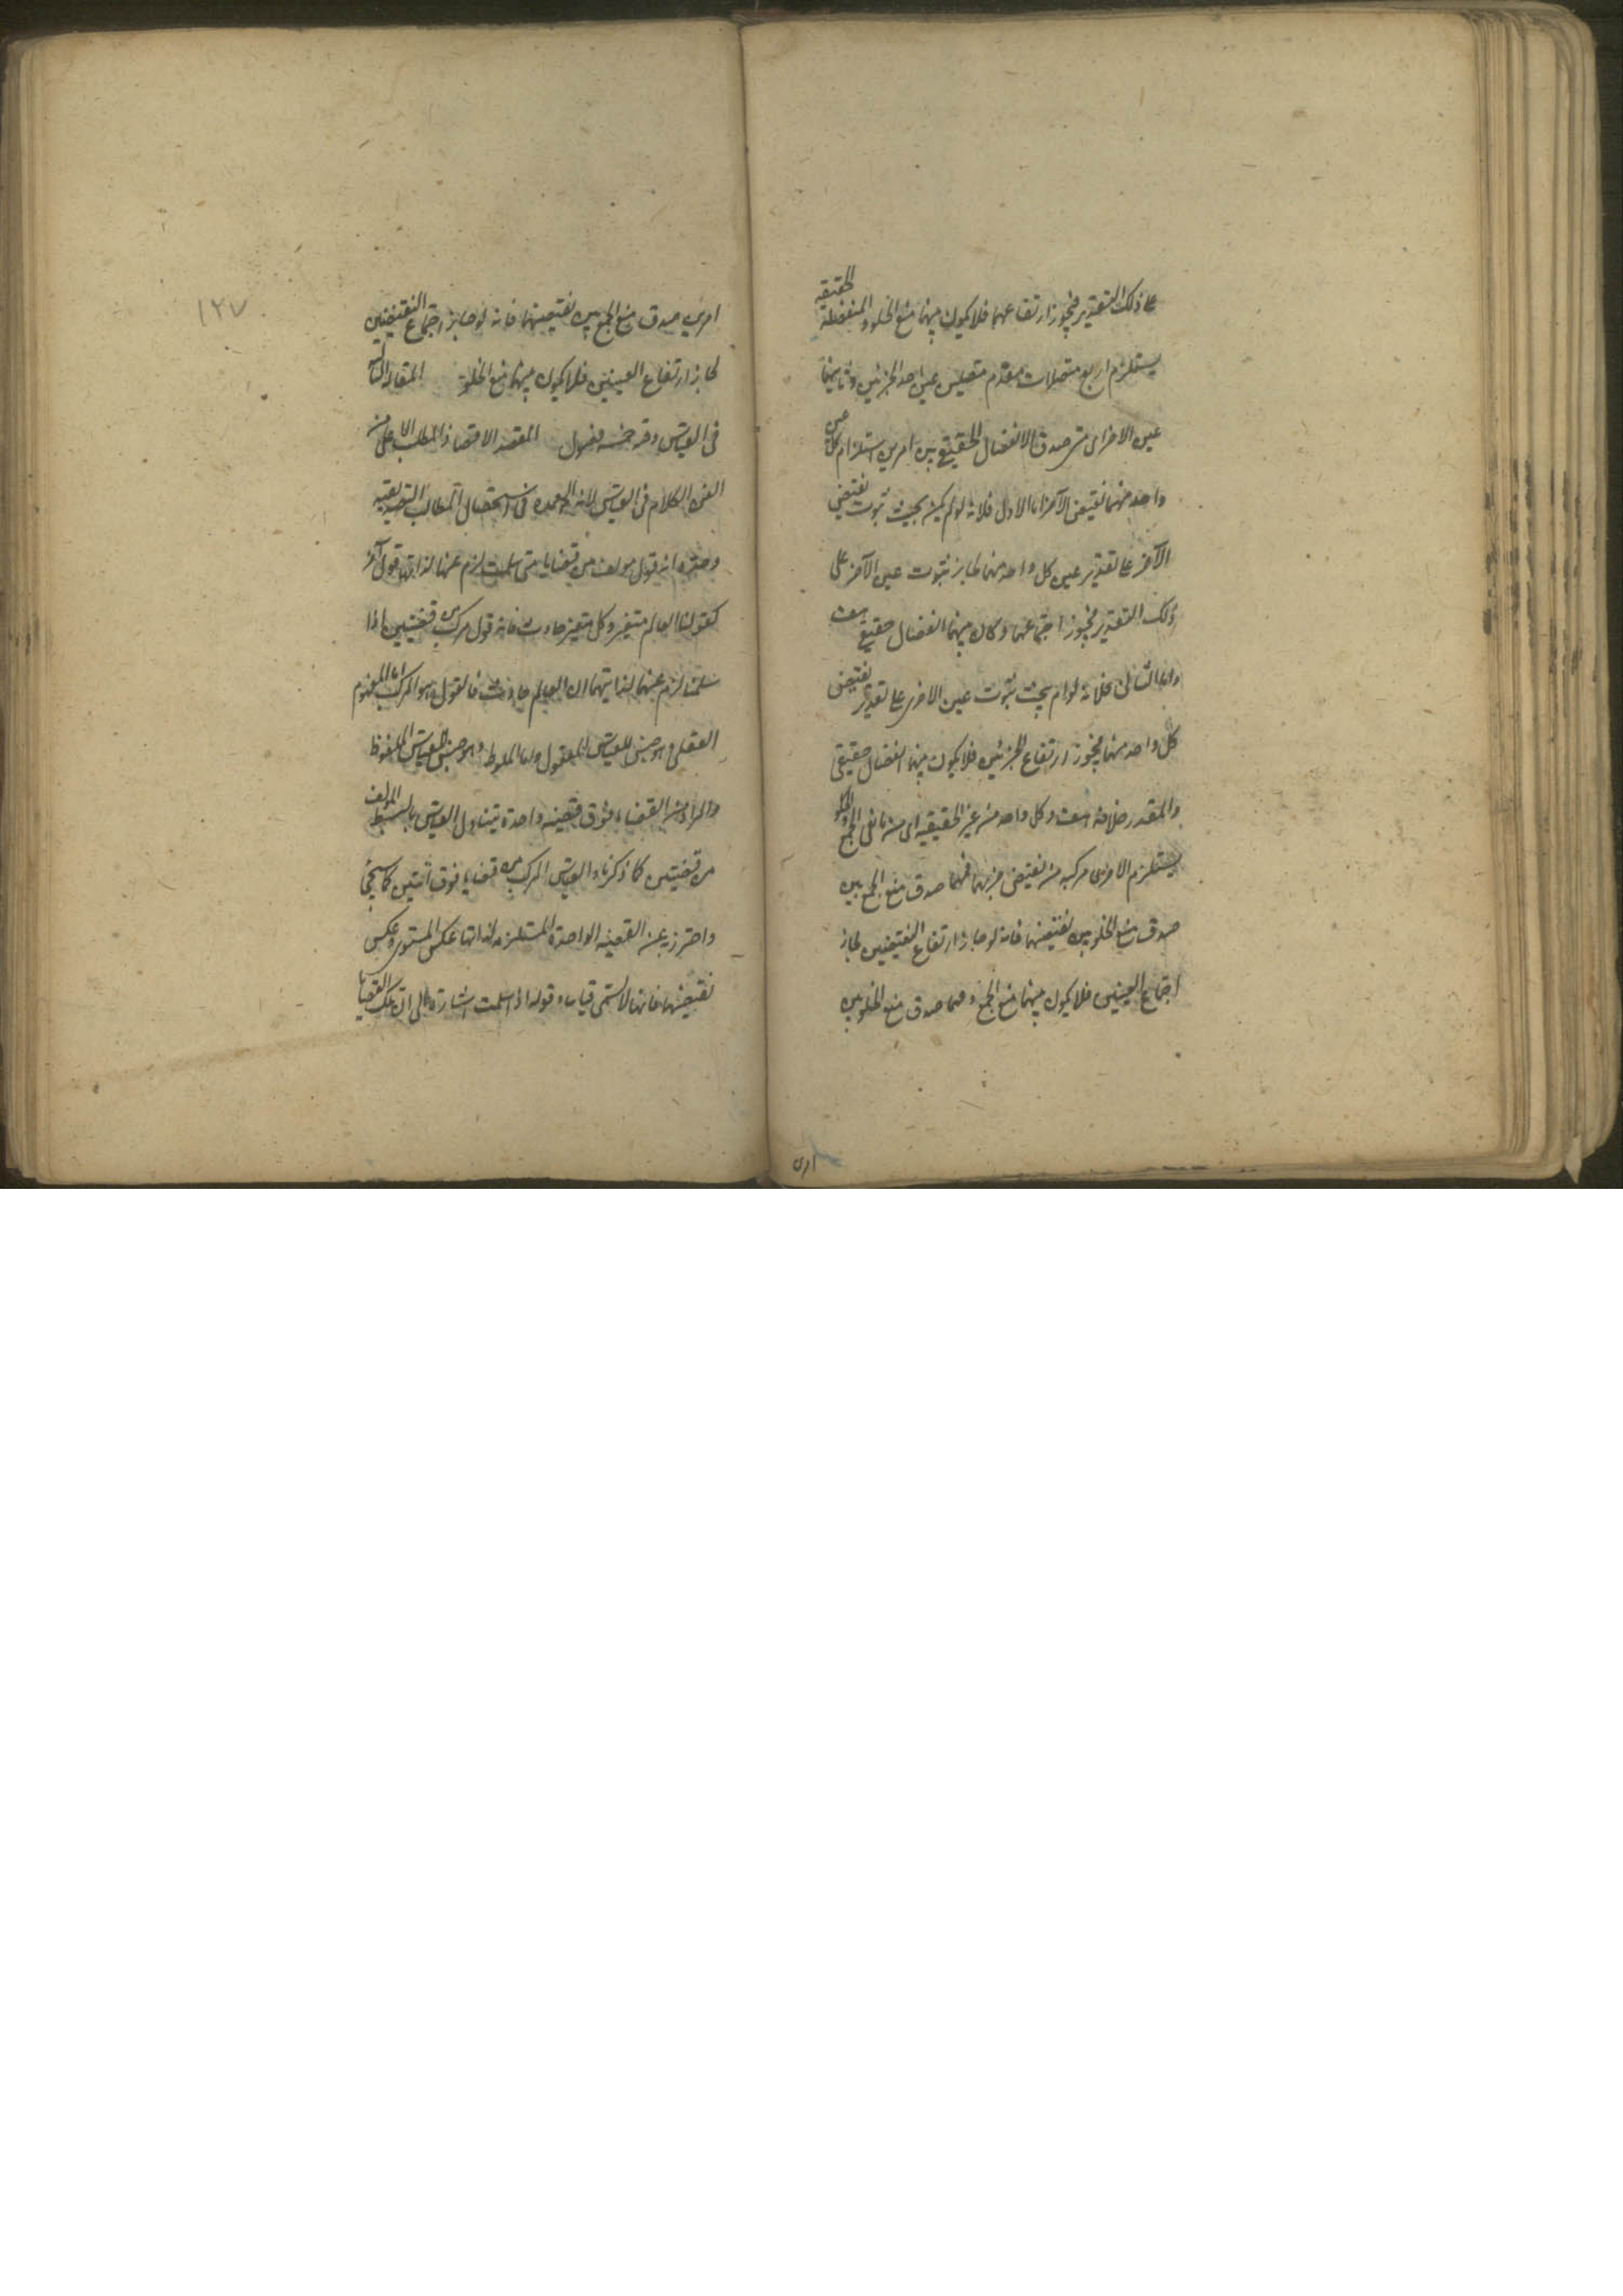 على ذلك التقدير فيجوز ارتفاعهما فلا يكون بينهما منع الخلو والمنفصلة الحقيقيه
يستلزم اربع متصلات مقدم متصلتين عين احد الجزئين وتاليهما
عين الاخر اى متى صدق الانفصال الحقيقى بين امرين استلزام عين كل
واحد منهما نقيض الآخر اما الاول فلانه لو لم يكن بحيث ثبوت نقيض
الآخر على تقدير عين كل واحد منهما لجاز ثبوت عين الآخر على
ذلك التقدير فيجوز اجتماعهما وكان بينهما انفصال حقيقى هف
واما الثانى فلانه لو لم يجب ثبوت عين الاخر على تقدير نقيض
كل واحد منهما فيجوز ارتفاع الجزئين فلا يكون بينهما انفصال حقيقى
والمقدر خلافه هف وكل واحد من غير الحقيقيه اى من مانعى الجمع والخلو
يستلزم الاخرى مركبه من نقيضى جزئيهما فمهما صدق منع الجمع بين
صدق منع الخلو بين نقيضيهما فانه لو جاز ارتفاع النقيضين لجاز
اجتماع العينين فلا يكون بينهما منع الجمع ومهما صدق منع الخلو بين
امرين
١٢٧
امرين صدق منع الجمع بين نقيضيهما فانه لو جاز اجتماع النقيضين
لجاز ارتفاع العينين فلا يكون بينهما منع الخلو المقاله الثالثه
فى القياس وفيه خمسه فصول المقصد الاقصى والمطلب الاعلى من
الفن الكلام فى القياس لانه العمده فى استحصال المطالب التصديقيه
وحدوه انه قول مولف من قضايا متى سلمت لزم عنها لذاتها قول آخر
كقولنا العالم متغير وكل متغير حادث فانه قول مركب من قضيتين اذا
سلمتا لزم عنهما لذاتيهما ان العالم حادث فالقول وهو المركب اما المفهوم
العقلى وهو جنس للقياس المعقول واما الملفوظ وهو جنس للقياس الملفوظ
والمراد من القضايا ما فوق قضيه واحدة ليتناول القياس البسيط المولف
من قضيتين كما ذكرنا والقياس المركب من قضايا فوق اثنتين كما سيجئ
واحترز به عن القضيه الواحدة المستلزمه لذاتها عكس المستوى وعكس
نقيضها فانها لا تسمى قياسا وقوله اذا سلمت اشارة الى ان تلك القضايا